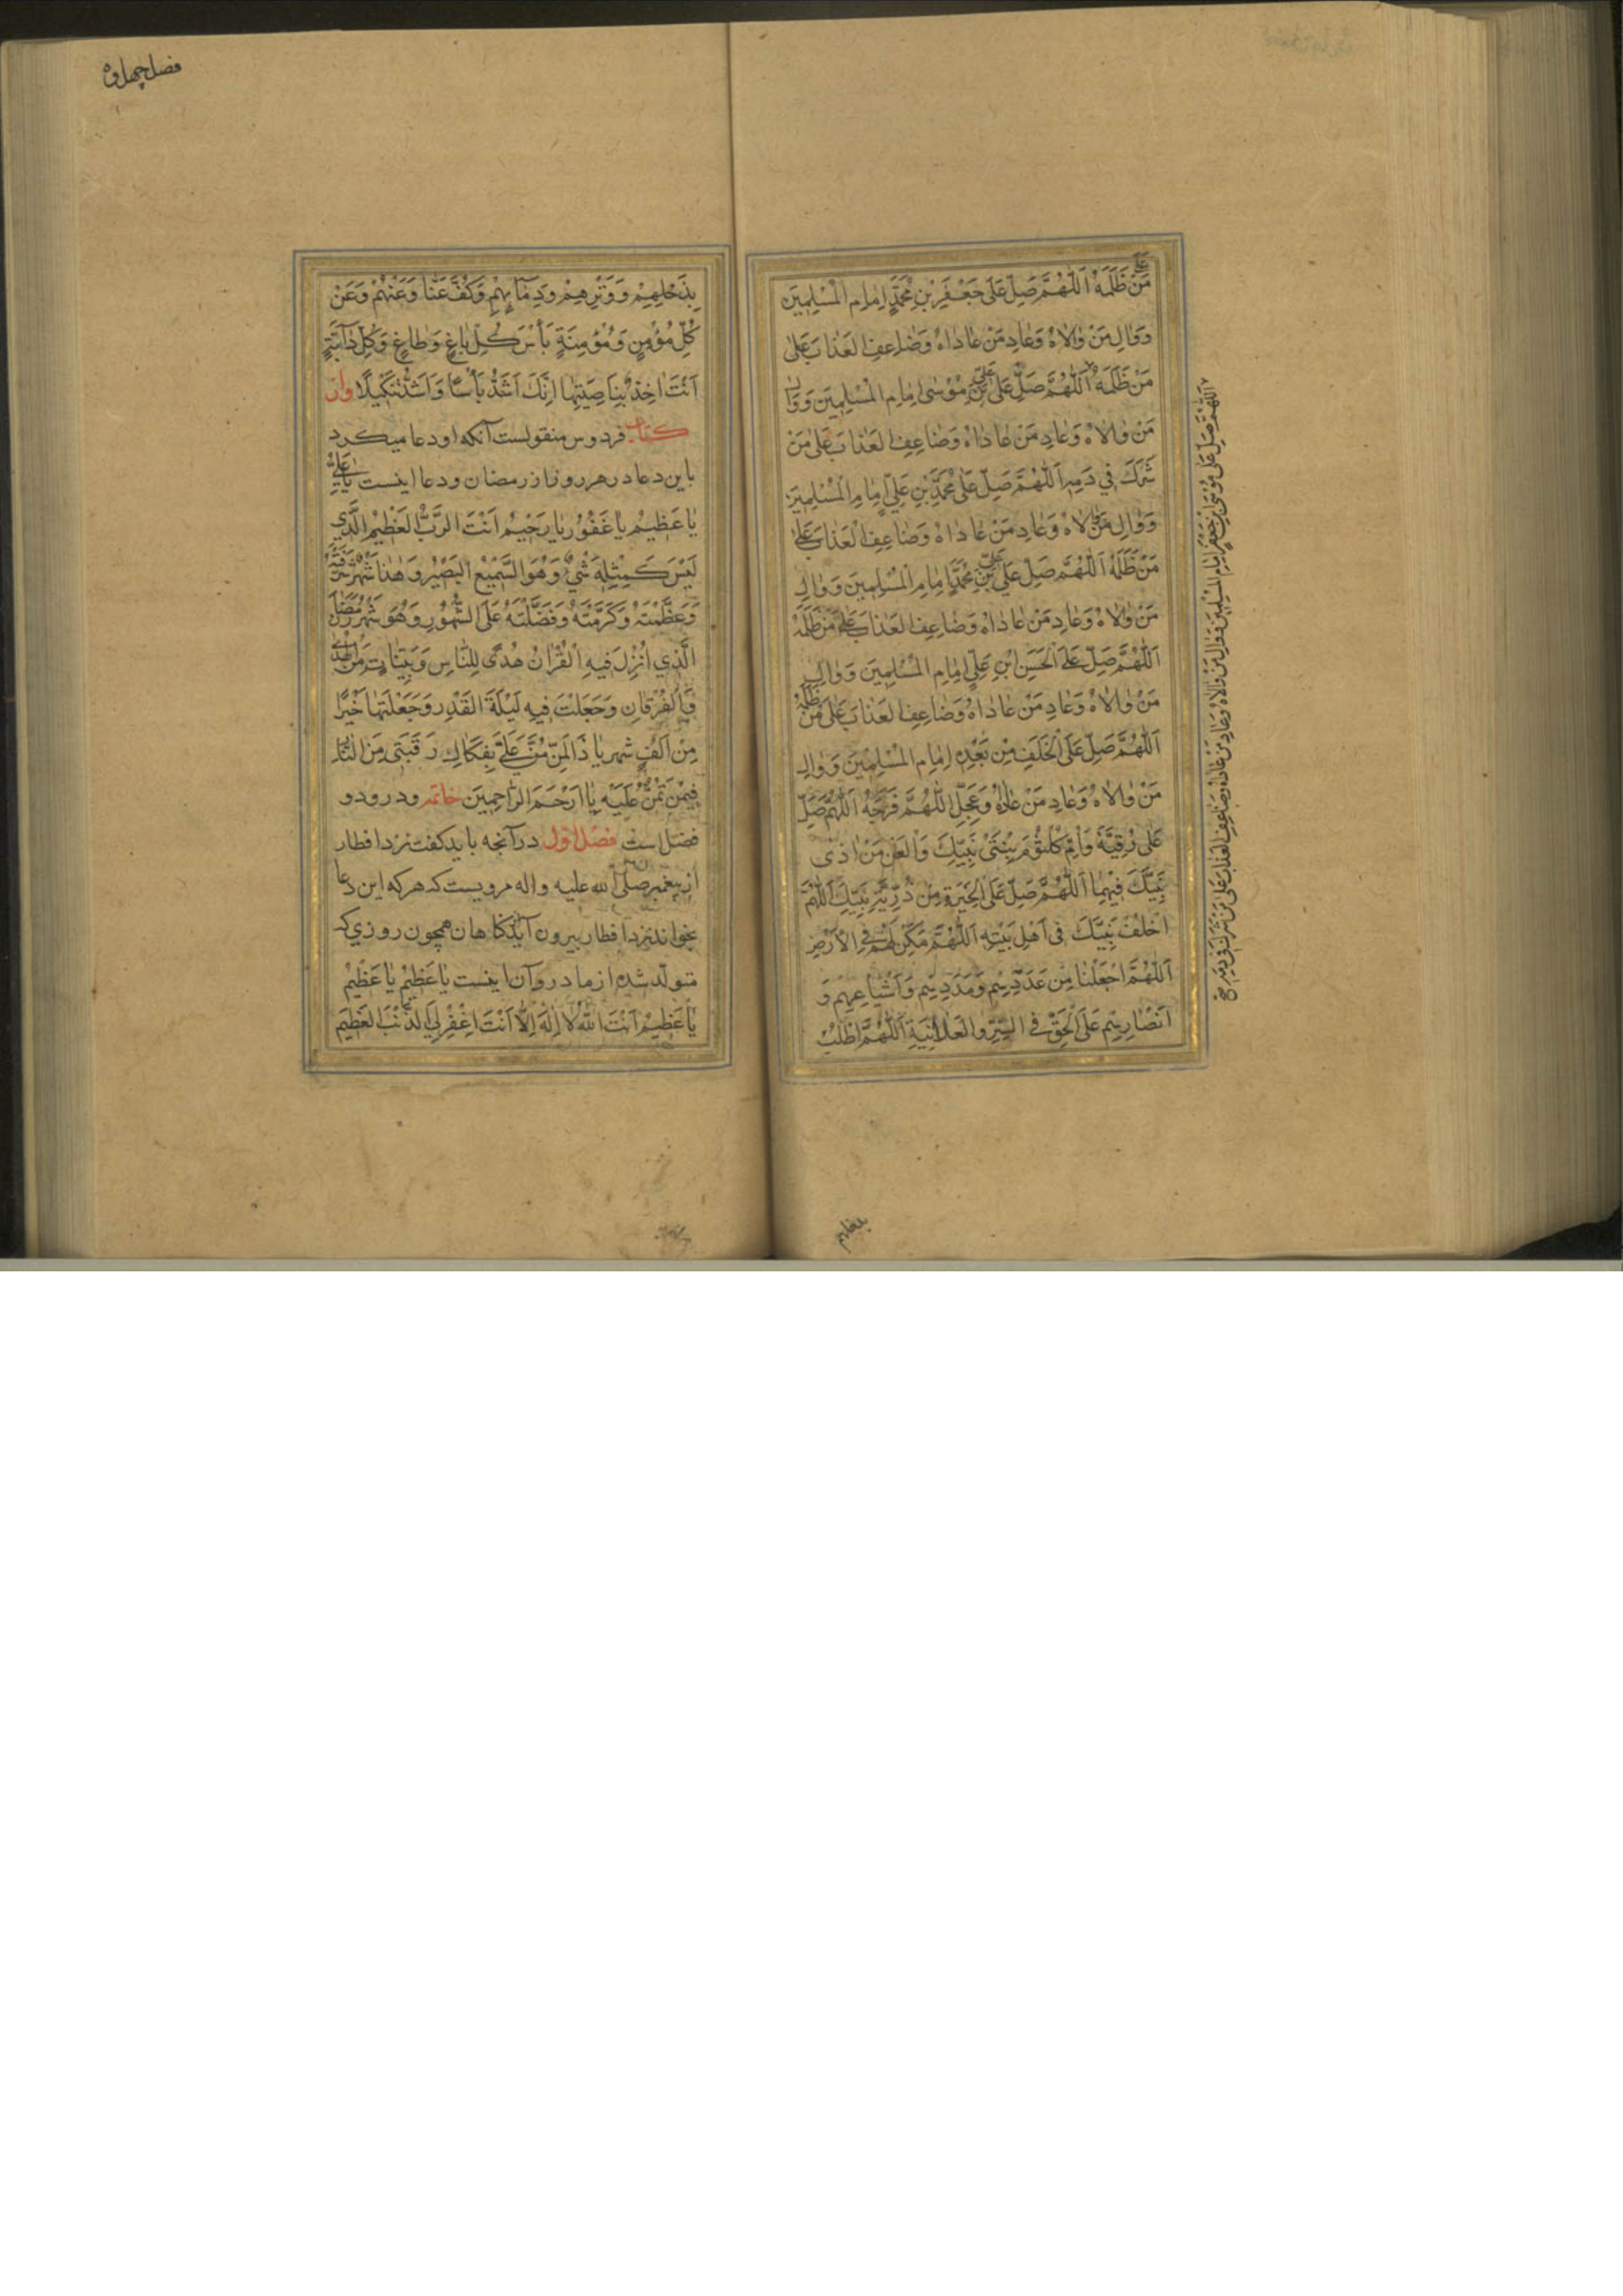 عَلی
مَنْ ظَلَمَهُ اَللّٰهُمَّ صَلِّ عَلٰى جَعْفَرِ بْنِ مُحَمَّدٍ اِمٰامِ الْمُسْلِمِيَن
وَوٰالِ مَنْ وٰالاٰهُ وَعٰادِ مَنْ عٰادٰاهُ وَضٰاعِفِ الْعَذٰابَ عَلٰى
مَنْ ظَلَمَهُ اَللّٰهُمَّ صَلِّ عَلٰى عَلِيِّ بْنِ مُوْسٰى اِمٰامِ الْمُسْلِمِيَن وَوٰالِ
مَنْ وٰالاٰهُ وَعٰادِ مَنْ عٰادٰاهُ وَضٰاعِفِ الْعَذٰابَ عَلٰى مَنْ
شَرَكَ فِي دَمِهِ اَللّٰهُمَّ صَلِّ عَلٰى مُحَمَّدِ بْنِ عَلِيٍّ اِمٰامِ الْمُسْلِمِيَن
وَوٰالِ مَنْ وٰالاٰهُ وَعٰادِ مَنْ عٰادٰاهُ وَضٰاعِفِ الْعَذٰابَ عَلٰى
مَنْ ظَلَمَهُ اَللّٰهُمَّ صَلِّ عَلٰى عَلِيِّ بْنِ مُحَمَّدٍ اِمٰامِ الْمُسْلِمِيَن وَوٰالِ
مَنْ وٰالاٰهُ وَعٰادِ مَنْ عٰادٰاهُ وَضٰاعِفِ الْعَذٰابَ عَلٰى مَنْ ظَلَمَهُ
اَللّٰهُمَّ صَلِّ عَلَى الْحَسَنِ ابْنِ عَلِيٍّ اِمٰامِ الْمُسْلِمِيَن وَوٰالِ
مَنْ وٰالاٰهُ وَعٰادِ مَنْ عٰادٰاهُ وَضٰاعِفِ الْعَذٰابَ عَلٰى مَنْ ظَلَمَهُ
اَللّٰهُمَّ صَلِّ عَلَى الْخَلَفِ مِنْ بَعْدِهِ اِمٰامِ الْمُسْلِمِيْنَ وَوٰالِ
مَنْ وٰالاٰهُ وَعٰادِ مَنْ عٰادٰاهُ وَعَجِّلِ اللّٰهُمَّ فَرَجَهُ اَللّٰهُمَّ صَلِّ
عَلٰى رُقِيَّةَ وَاُمِّ كُلْثُوْمَ بِنْتَيْ نَبِيِّكَ وَالْعَنْ مَنْ اٰذٰى
نَبِيَّكَ فِيْهِمٰا اَللّٰهُمَّ صَلِّ عَلَى الْخِيَرَةِ مِنْ ذُرِّيَّةِ نَبِيِّكَ اَللّٰهُمَّ
اخْلُفْ نَبِيَّكَ فِى اَهْلِ بَيْتِهِ اَللّٰهُمَّ مَكِّنْ لَهُمْ فِى الْاَرْضِ
اَللّٰهُمَّ اجْعَلْنٰا مِنْ عَدَدِهِمْ وَمَدَدِهِمْ وَاَشْيٰاعِهِمْ وَ
اَنْصٰارِهِمْ عَلَى الْحَقِّ فِى السِّرِّ وَالْعَلاٰنِيَةِ اَللّٰهُمَّ اطْلُبْ
اَللّٰهُمَّ صَلِّ عَلٰى مُوْسَى ابْنِ جَعْفَرٍ اِمٰامِ الْمُسْلِمِيَن وَوٰالِ مَنْ وٰالاٰهُ وَعٰادِ مَنْ عٰادٰاهُ وَضٰاعِفِ الْعَذٰابَ عَلٰى مَنْ شَرَكَ فِي دَمِهِ
بذحلهم
فصل چهل و
بِذَحْلِهِمْ وَوَتْرِهِمْ وَدِمٰائِهِمْ وَكُفَّ عَنّٰا وَعَنْهُمْ وَعَنْ
كُلِّ مُؤْمِنٍ وَمُؤْمِنَةٍ بَأْسَ كُلِّ بٰاغٍ وَطٰاغٍ وَكُلِّ دٰآبَّةٍ
اَنْتَ اٰخِذٌ بِنٰاصِيَتِهٰا اِنَّكَ اَشَدُّ بَأْسًا وَاَشَدُّ تَنْكِيْلًا واز
كتاب فردوس منقولست آنكه او دعا ميكرد
باين دعا در هر روز از رمضان و دعا اينست يٰا عَلِيُّ
يٰا عَظِيْمُ يٰا غَفُوْرُ يٰا رَحِيْمُ اَنْتَ الرَّبُّ الْعَظِيْمُ الَّذِي
لَيْسَ كَمِثْلِهِ شَيْءٌ وَهُوَ السَّمِيْعُ الْبَصِيْرُ وَهٰذٰا شَهْرٌ شَرَّفْتَهُ
وَعَظَّمْتَهُ وَكَرَّمْتَهُ وَفَضَّلْتَهُ عَلَى الشُّهُوْرِ وَهُوَ شَهْرُ رَمَضٰانَ
الَّذِي اُنْزِلَ فِيهِ الْقُرْاٰنُ هُدًى لِلنّٰاسِ وَبَيِّنٰاتٍ مِنَ الْهُدٰى
وَالْفُرْقٰانِ وَجَعَلْتَ فِيهِ لَيْلَةَ الْقَدْرِ وَجَعَلْتَهٰا خَيْرًا
مِنْ اَلْفِ شَهْرٍ يٰا ذَا الْمَنِّ مُنَّ عَلَيَّ بِفَكٰاكِ رَقَبَتِى مِنَ النّٰارِ
فِيْمَنْ تَمُنُّ عَلَيْهِ يٰا اَرْحَمَ الرّٰاحِمِيَن خاتمه و درو دو
فصل است فصل اول در آنچه بايد گفت نزد افطار
از پيغمبر صلى الله عليه و اله مرويست كه هر كه اين دعا
بخواند نزد افطار بيرون آيد از گناهان همچون روزي كه
متولد شده از مادر و آن اينست يٰا عَظِيْمُ يٰا عَظِيْمُ
يٰا عَظِيْمُ اَنْتَ اللّٰهُ لاٰ اِلٰهَ اِلّٰا اَنْتَ اغْفِرْ لِيَ الذَّنْبَ الْعَظِيْمَ